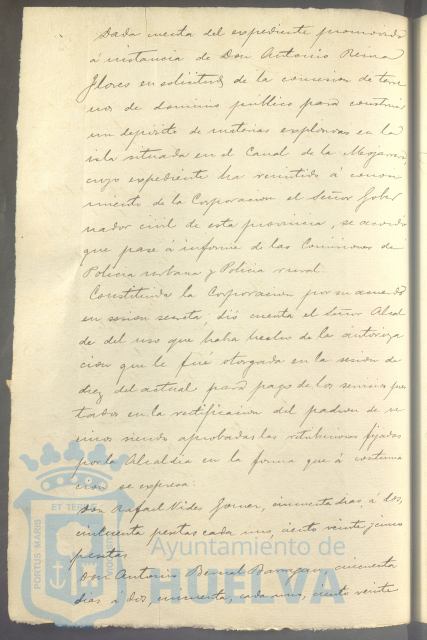 Dada cuenta del expediente promovido
á instancia de Don Antonio Reina
Flores en solicitud de la concesion de terre
nos de dominio público para construir
un depósito de materias explosivas en la
isla situada en el Canal de la Mojarrera
cuyo expediente ha remitido á conoci
miento de la Corporacion el Señor Gober
nador civil de esta provincia, se acordó
que pase á informe de las Comisiones de
Policia urbana y Policia rural.
Constituida la Corporacion por su acuerdo
en sesion secreta, dió cuenta el Señor Alcal
de del uso que habia hecho de la autoriza
cion que le fué otorgada en la sesion de
diez del actual para pago de los servicios pres
tados en la rectificacion del padron de ve
cinos siendo aprobadas las retribuciones fijadas
por la Alcaldia en la forma que á continua
cion se expresa:
Don Rafael Vides cincuenta dias, á dos,
cincuenta pesetas cada uno, ciento veinte y cinco
pesetas
Don Antonio Bernal Barragan, cincuenta
dias á dos, cincuenta, cada uno, ciento veinte
PORTUS MARIS
ET TERRE
CUSTODIA
Ayuntamiento de
HUELVA